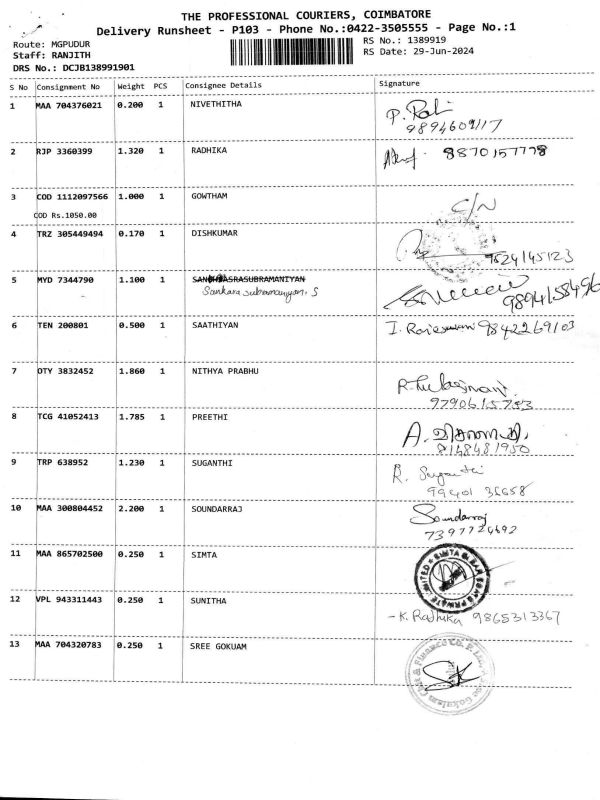 THE PROFESSIONAL COURIERS, COIMBATORE
Delivery Runsheet - P103 - Phone No.:0422-3505555 - Page No.:1
Route: MGPUDUR
RS No.: 1389919
Staff: RANJITH
RS Date: 29-Jun-2024
DRS No.: DCJB138991901
S No Consignment No Weight PCS Consignee Details Signature
1 MAA 704376021 0.200 1 NIVETHITHA
P.
2 RJP 3360399 1.320 1 RADHIKA 8870157778
3 COD 1112097566 1.000 1 GOWTHAM C/N
COD Rs.1050.00
4 TRZ 305449494 0.170 1 DISHKUMAR
9524145123
5 MYD 7344790 1.100 1
Sankara subramaniyan. S
9894158496
6 TEN 200801 0.500 1 SAATHIYAN I. 9842269103
7 OTY 3832452 1.860 1 NITHYA PRABHU
9790615753
8 TCG 41052413 1.785 1 PREETHI
A.
8148481950
9 TRP 638952 1.230 1 SUGANTHI R. Suganthi
99401 36658
10 MAA 300804452 2.200 1 SOUNDARRAJ Soundarraj
7397724692
11 MAA 865702500 0.250 1 SIMTA
SIMTA PRIVATE LIMITED
12 VPL 943311443 0.250 1 SUNITHA
- K. Radhika 9865313367
13 MAA 704320783 0.250 1 SREE GOKUAM
& Finance Co. P. Gokulam